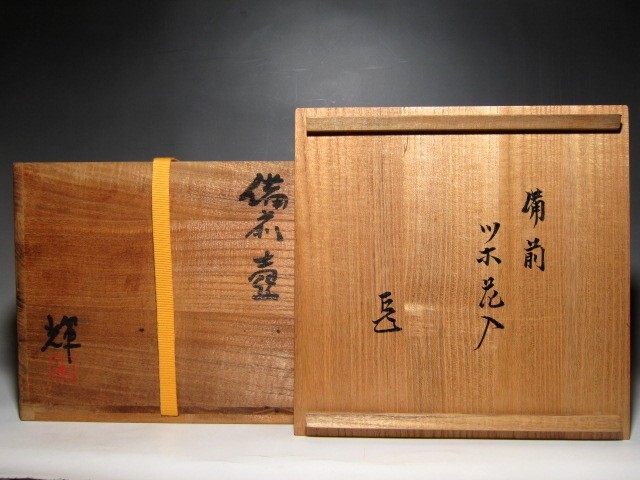 備前壺
輝
備前
ツボ花入